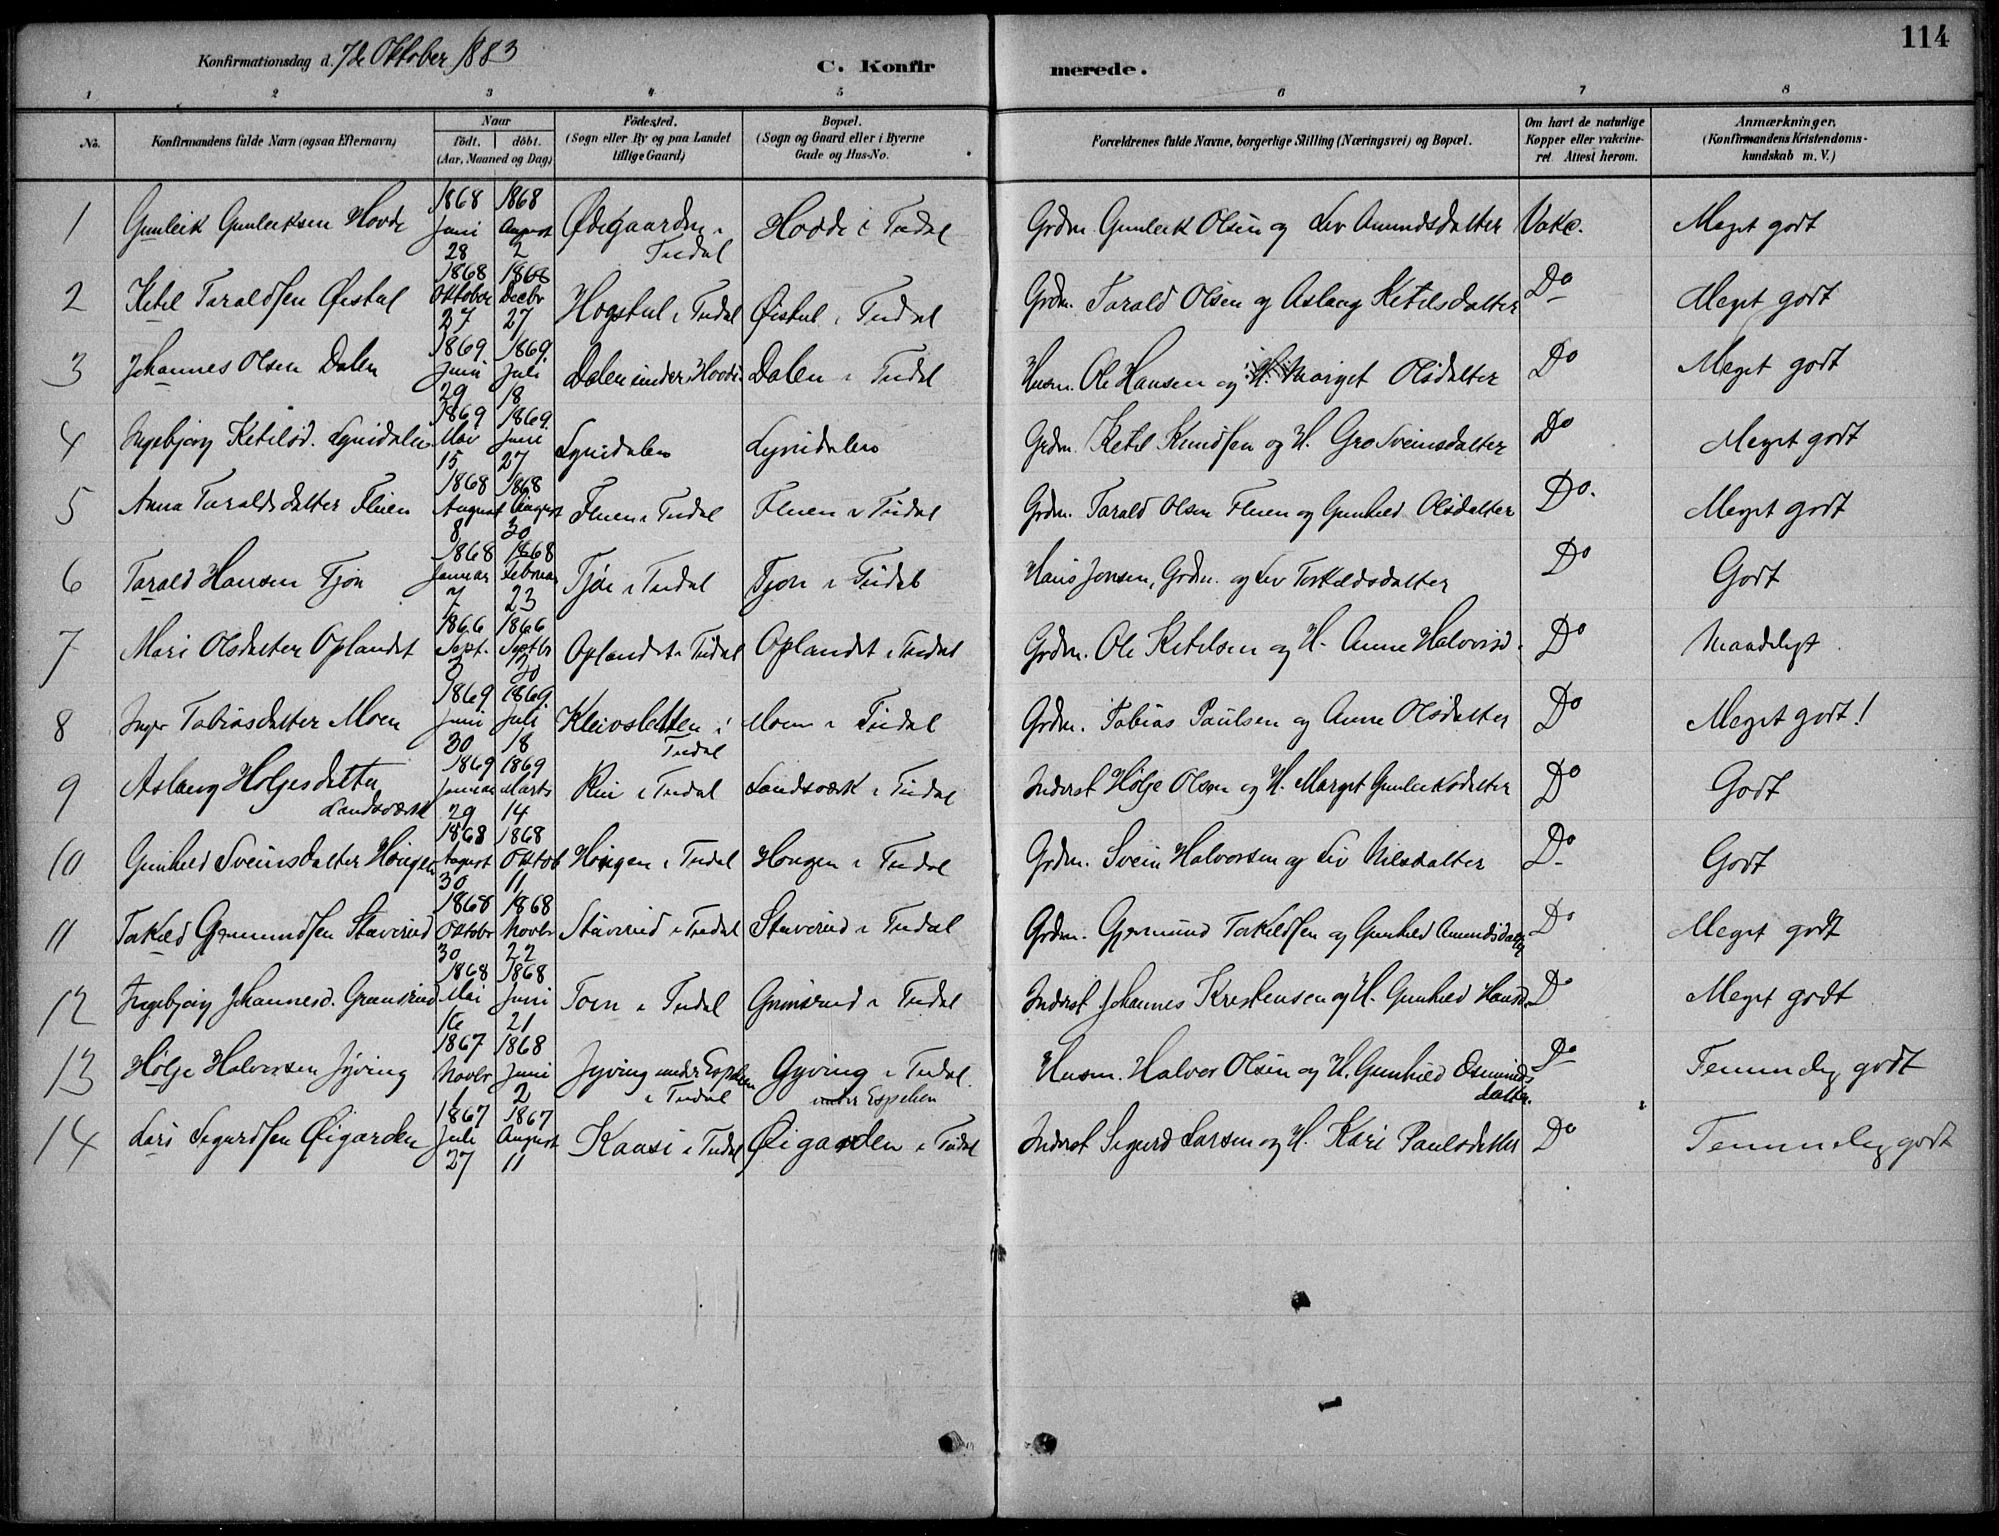 114
Konfirmationsdag d. 7de Oktober 1883
C. Konfir merede.
1 2 3 4 5 6 7 8
No. Konfirmandens fulde Navn (ogsaa Efternavn) Naar födt. döbt. (Aar, Maaned og Dag) Födested. (Sogn eller By og paa Landet tillige Gaard) Bopæl. (Sogn og Gaard eller i Byerne Gade og Hus-No. Forældrenes fulde Navne, borgerlige Stilling (Næringsvei) og Bopæl. Om havt de naturlige Kopper eller vakcineret. Attest herom. Anmærkninger, (Konfirmandens Kristendomskundskab m. V.)
1 Gunleik Gunleiksen Hovde 1868 Juni 28 1868 August 2 Ødegaarden i Tudal Hovde i Tudal Grdm. Gunleik Olsen og Liv Amundsdatter Vakc. Meget godt
2 Ketil Taraldsen Øistul 1868 Oktober 27 1868 Decbr 27 Hogstul i Tudal Øistul i Tudal Grdm. Tarald Olsen og Aslaug Ketilsdatter Do Meget godt
3 Johannes Olsen Dalen 1869 Juni 29 1869 Juli 18 Dalen under Hovde Dalen i Tudal Husm. Ole Hansen og H. Marget Olsdatter Do Meget godt
4 Ingebjørg Ketilsd. Lynidalen 1869 Mai 15 1869 Juni 27 Lynidalen Lynidalen Grdm. Ketil Knudsen og H. Gro Sveinsdatter Do Meget godt
5 Anna Taraldsdatter Fluen 1868 August 8 1868 August 30 Fluen i Tudal Fluen i Tudal Grdm. Tarald Olsen Fluen og Gunhild Olsdatter Do. Meget godt
6 Tarald Hansen Tjøn 1868 Januar 7 1868 Februar 23 Tjøn i Tudal Tjøn i Tudal Hans Jonsen, Grdm. og Liv Torkildsdatter Do Godt
7 Mari Olsdatter Oplandet 1866 Sept. 1866 Septbr 30 Oplandet i Tudal Oplandet i Tudal Grdm. Ole Ketilsen og H. Anne Halvorsd. Do Maadeligt
8 Inger Tobiasdatter Moen 1869 Juni 30 1869 Juli 18 Kleivsletten i Tudal Moen i Tudal Grdm. Tobias Paulsen og Anne Olsdatter Do Meget godt!
9 Aslaug Holgesdatter Landsværk 1869 Januar 29 1869 Marts 14 Rui i Tudal Landsværk i Tudal Inderst Hølje Olsen og H. Marget Gunleiksdatter Do Godt
10 Gunhild Sveinsdatter Høngen 1868 August 30 1868 Oktob 11 Høngen i Tudal Høngen i Tudal Grdm. Svein Halvorsen og Liv Nilsdatter Do Godt
11 Torkild Gjermundsen Staverud 1868 Oktobr 30 1868 Novbr 22 Staverud i Tudal Staverud i Tudal Grdm. Gjermund Torkildsen og Gunhild Amundsdatter Do Meget godt
12 Ingebjørg Johannesd. Grønsrud 1868 Mai 16 1868 Juni 21 Toen i Tudal Grønsrud i Tudal Inderst Johannes Kristensen og H. Gunhild Hansd. Do Meget godt
13 Hølje Halvorsen Jyving 1867 Novbr 1 1868 Juni 2 Jyving under Espelien i Tudal Gyving i Tudal. under Espelien Husm. Halvor Olsen og H. Gunhild Osmunds datter. Do Temmelig godt
14 Lars Sigurdsen Øigarden 1867 Juli 27 1867 August 11 Kaasi i Tudal Øigarden i Tudal Inderst Sigurd Larsen og H. Kari Paulsdatter Do Temmelig godt